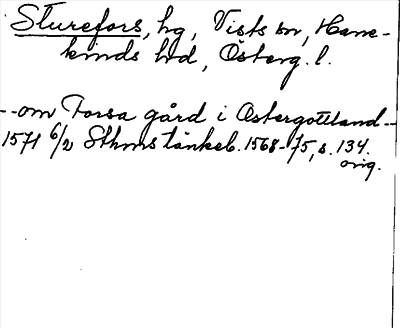 Sturefors, hg, Vists sn, Hane-
kinds hd, Österg. l.
--om Forsa gård i Ostergottland--
1571 6/2 Sthms tänkeb. 1568-75, s. 134.
orig.